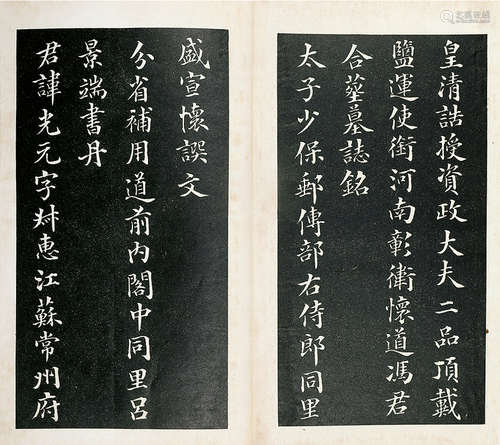 皇清誥授資政大夫二品頂戴
鹽運使銜河南彰衛懷道馮君
合葬墓誌銘
太子少保郵傳部右侍郎同里
盛宣懷譔文
分省補用道前內閣中同里呂
景端書丹
君諱光元字尗惠江蘇常州府